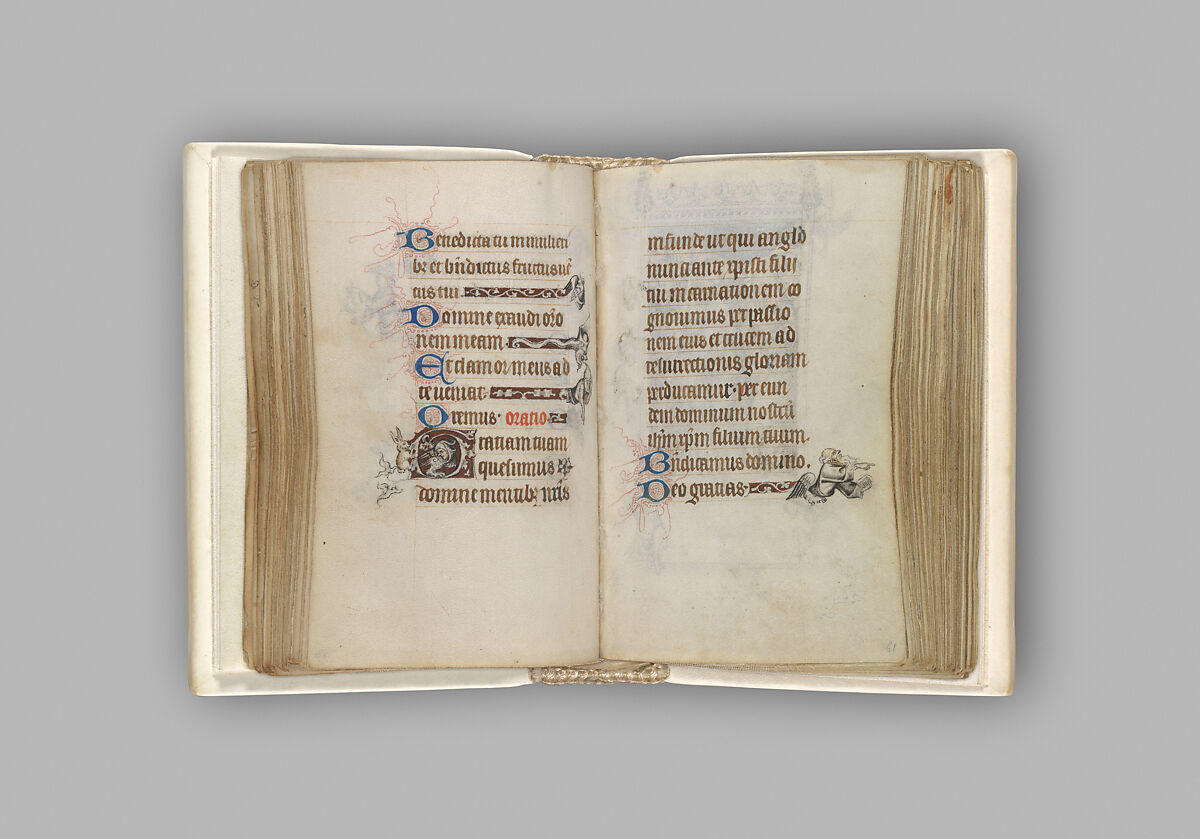 Benedicta tu in mulieri
bꝫ et bn̄dictus fructus uē
tris tui
Domine exaudi or̄o
nem meam
Et clamor meus ad
te ueniat
Oremus. oratio
Gratiam tuam
quesumus
domine mentibꝫ nr̄īs
infunde ut qui anglo
nunciante xp̄isti filij
tui incarnationem co
gnouimus per passio
nem eius et crucem ad
resurrectionis gloriam
perducamur. per eun
dem dominum nostrū
ih̄m xp̄m filium tuum.
Bn̄dicamus domino.
Deo gratias.
61